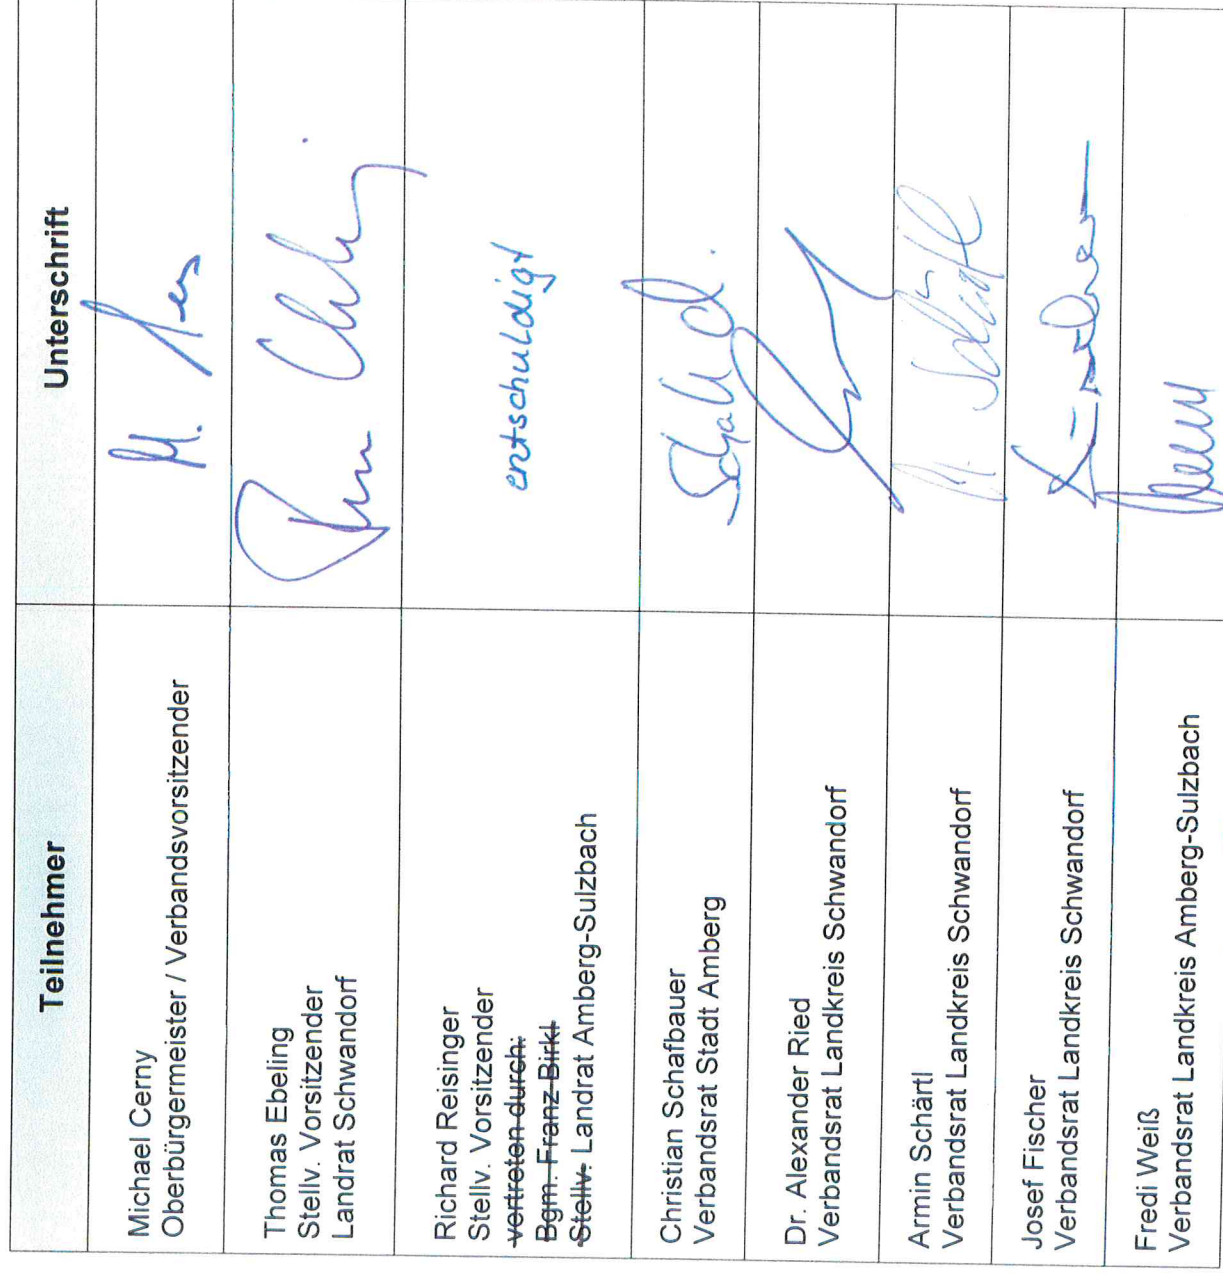 Teilnehmer
Unterschrift
Michael Cerny
Oberbürgermeister / Verbandsvorsitzender
Thomas Ebeling
Stellv. Vorsitzender
Landrat Schwandorf
Richard Reisinger
Stellv. Vorsitzender
vertreten durch:
Bgm. Franz Birkl
Stellv. Landrat Amberg-Sulzbach
entschuldigt
Christian Schafbauer
Verbandsrat Stadt Amberg
Dr. Alexander Ried
Verbandsrat Landkreis Schwandorf
Armin Schärtl
Verbandsrat Landkreis Schwandorf
Josef Fischer
Verbandsrat Landkreis Schwandorf
Fredi Weiß
Verbandsrat Landkreis Amberg-Sulzbach